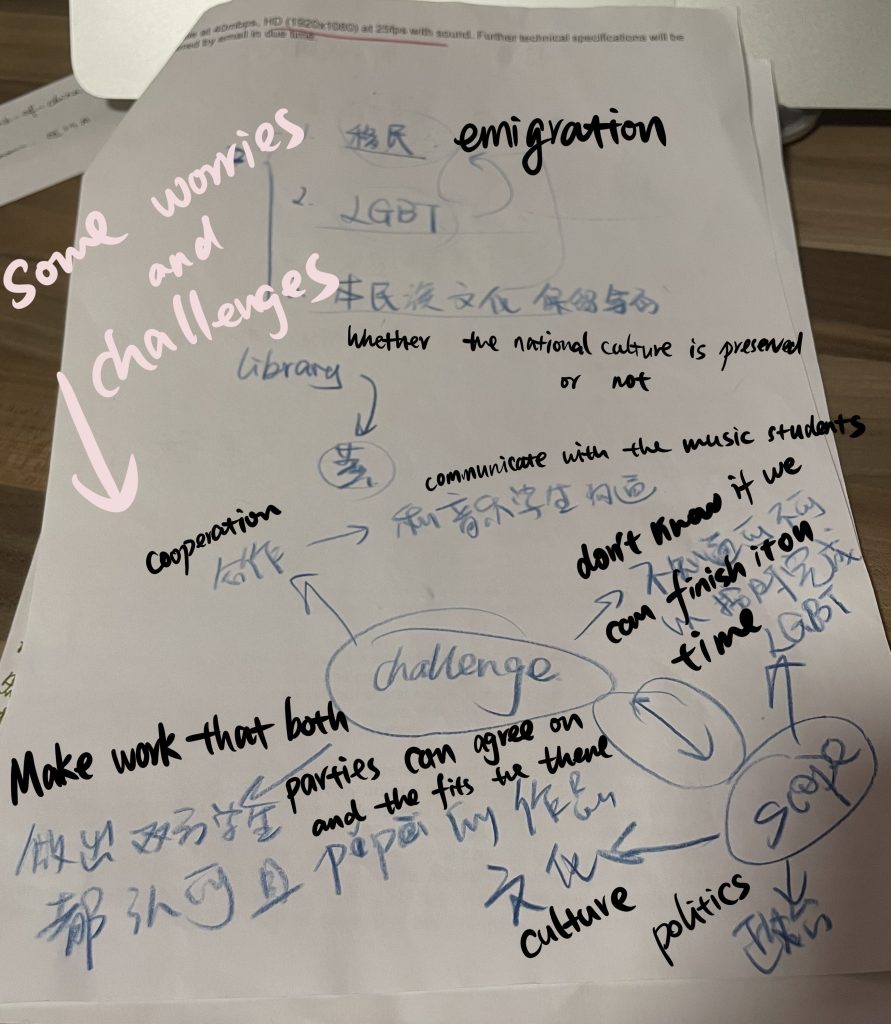 at 40mbps, HD (1920x1080) at 25fps with sound. Further technical specifications will be
by email in due time.
Some worries
and
challenges
1. 移民
emigration
2. LGBT
本民族文化保留与否
Whether the national culture is preserved
or not
library
communicate with the music students
和音乐学生沟通
cooperation
合作
don't know if we
can finish it on
time
不知道可不可
以按时完成
LGBT
challenge
Make work that both
parties can agree on
and the fits the there
做出双方学生
都认可且 pépéi 的作品
scope
文化
culture
politics
政治